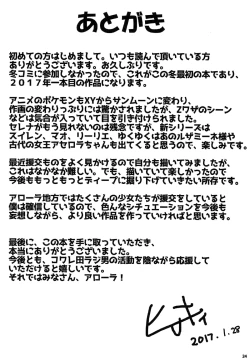 あとがき
初めての方はじめまして。いつも読んで頂いている方
ありがとうございます。お久しぶりです。
冬コミに参加しなかったので、これがこの冬最初の本であり、
２０１７年一本目の作品になります。
アニメのポケモンもXYからサンムーンに変わり、
作画の変わりっぷりには驚かされましたが、Zワザのシーン
などは気合が入っていて目を引き付けられました。
セレナがもう見れないのは残念ですが、新シリーズは
スイレン、マオ、リーリエ、ゆくゆくはあのルザミーネ様や
古代の女王アセロラちゃんも出てくると思うので、楽しみです。
最近援交ものをよく見かけるので自分も描いてみましたが、
これはなかなか難しい。でも、描いていて楽しかったので
今後ももっともっとディープに掘り下げていきたい所存です。
アローラ地方ではたくさんの少女たちが援交をしていると
僕は確信しているので、色んなシチュエーションを今後も
妄想しながら、より良い作品を作っていければと思います。
最後に、この本を手に取っていただき、
本当にありがとうございました。
今後とも、コワレ田ラジ男の活動を陰ながら応援して
いただけると嬉しいです。
それではみなさん、アローラ！
2017.1.28